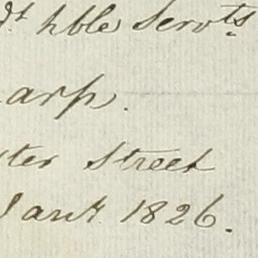 dt hble Servts
arp.
ter Street
Jany. 1826.